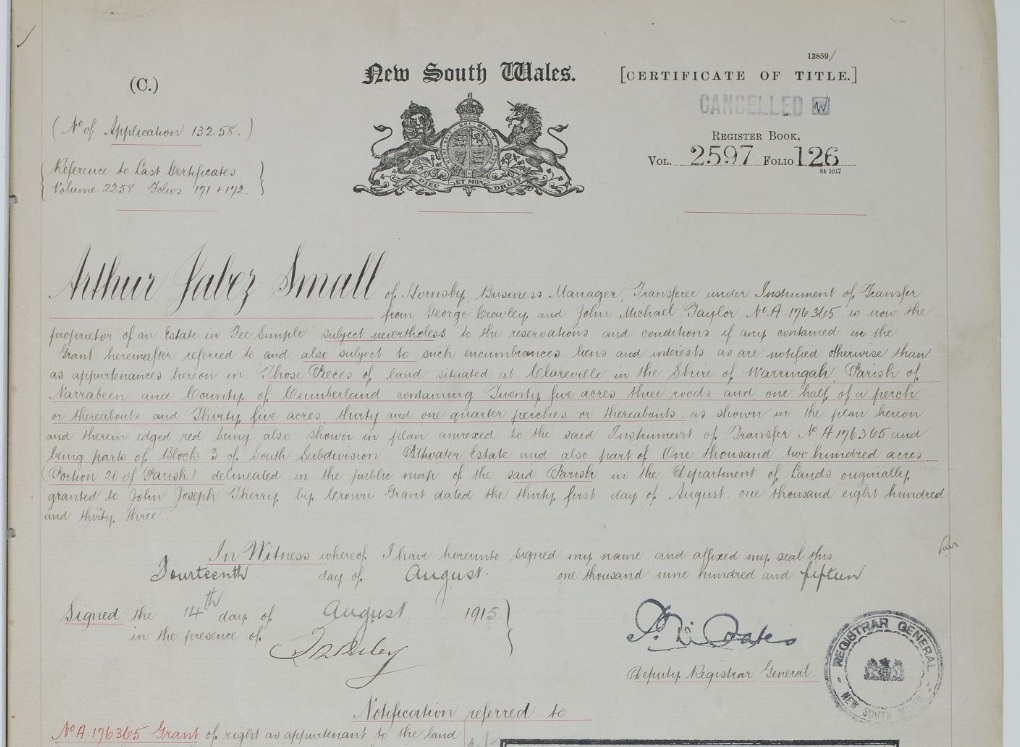 13859/
(C.)
New South Wales.
[CERTIFICATE OF TITLE.]
CANCELLED
(No of Application 13258.)
REGISTER BOOK.
VOL. 2597 FOLIO 126
St 1017
Reference to Last Certificates
Volume 2258 Folios 171 + 172.
DIEU ET MON DROIT
Arthur Jabez Small of Hornsby, Business Manager, Transferee under Instrument of Transfer
from George Crowley and John Michael Taylor No A 176365 is now the
proprietor of an Estate in Fee Simple subject nevertheless to the reservations and conditions if any contained in the
Grant hereinafter referred to and also subject to such encumbrances liens and interests as are notified otherwise than
as appurtenances hereon in Those Pieces of land situated at Clareville in the Shire of Warringah Parish of
Narrabeen and County of Cumberland containing Twenty five acres three roods and one half of a perch
or thereabouts and Thirty five acres, thirty and one quarter perches or thereabouts as shown in the plan hereon
and therein edged red being also shown in plan annexed to the said Instrument of Transfer No A 176365 and
being parts of Block 3 of South Subdivision Pittwater Estate and also part of One thousand two hundred acres
(Portion 20 of Parish) delineated in the public map of the said Parish in the Department of Lands originally
granted to John Joseph Therry by Crown Grant dated the thirty first day of August one thousand eight hundred
and thirty three.
In Witness whereof I have hereunto signed my name and affixed my seal this
Fourteenth day of August one thousand nine hundred and fifteen
Signed the 14th day of August 1915
in the presence of
Deputy Registrar General.
REGISTRAR GENERAL
NEW SOUTH WALES
Notification referred to
No A 176365 Grant of right as appurtenant to the land